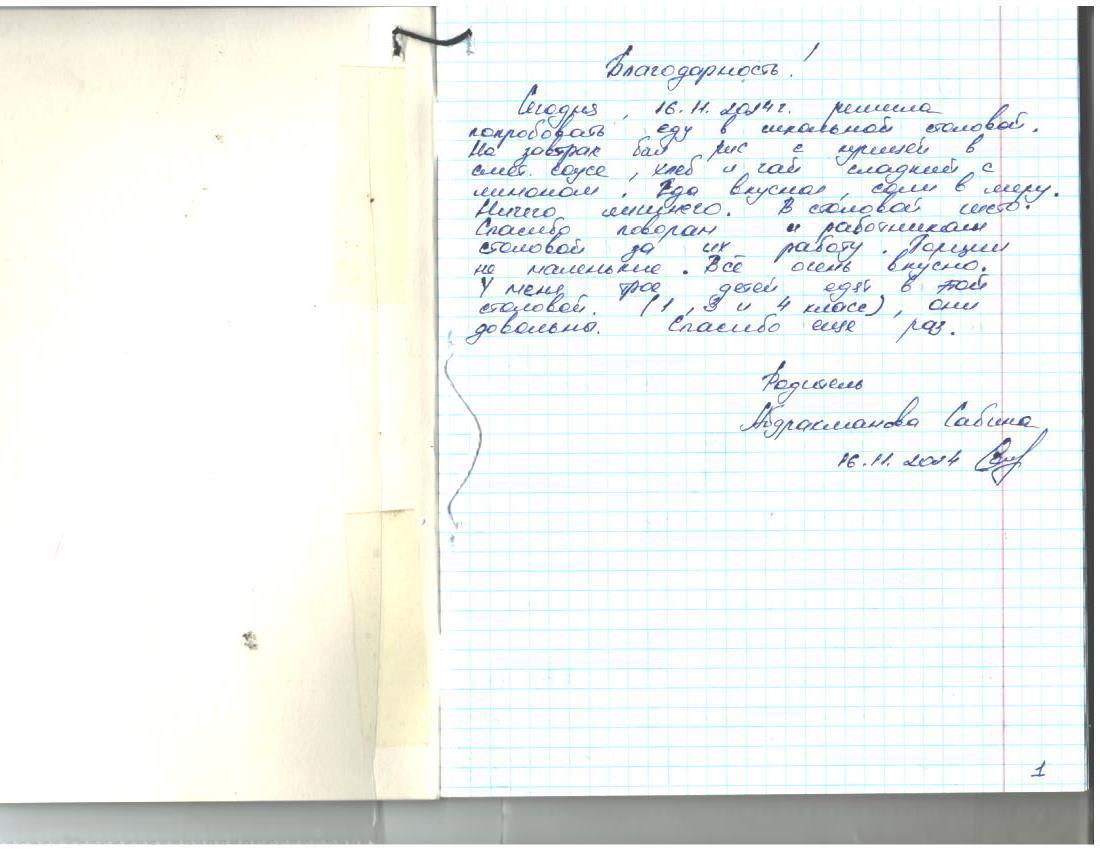 Благодарность!
Сегодня, 16.11.2024г. решила
попробовать еду в школьной столовой.
На завтрак был рис с курицей в
смет. соусе, хлеб и чай сладкий с
лимоном. Еда вкусная, соли в меру.
Ничего лишнего. В столовой чисто.
Спасибо поворам и работникам
столовой за их работу. Порции
не маленькие. Всё очень вкусно.
У меня трое детей едят в этой
столовой. (1, 3 и 4 класс), они
довольны. Спасибо еще раз.
Родитель
Абдракманова Сабина
16.11.2024
1